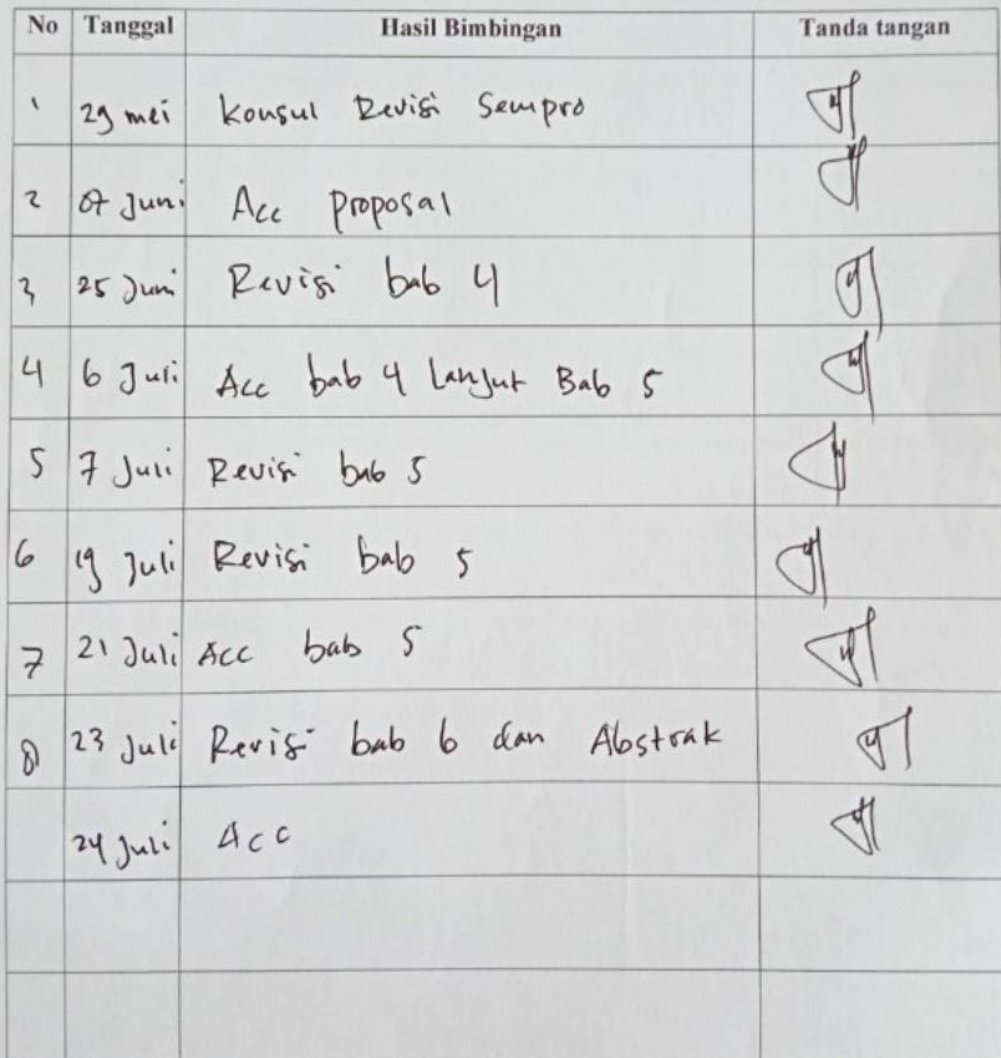 No Tanggal Hasil Bimbingan Tanda tangan
1 29 mei Konsul Revisi Sempro
2 07 Juni Acc proposal
3 25 Juni Revisi bab 4
4 6 Juli Acc bab 4 Lanjut Bab 5
5 7 Juli Revisi bab 5
6 19 Juli Revisi bab 5
7 21 Juli Acc bab 5
8 23 Juli Revisi bab 6 dan Abstrak
24 Juli Acc